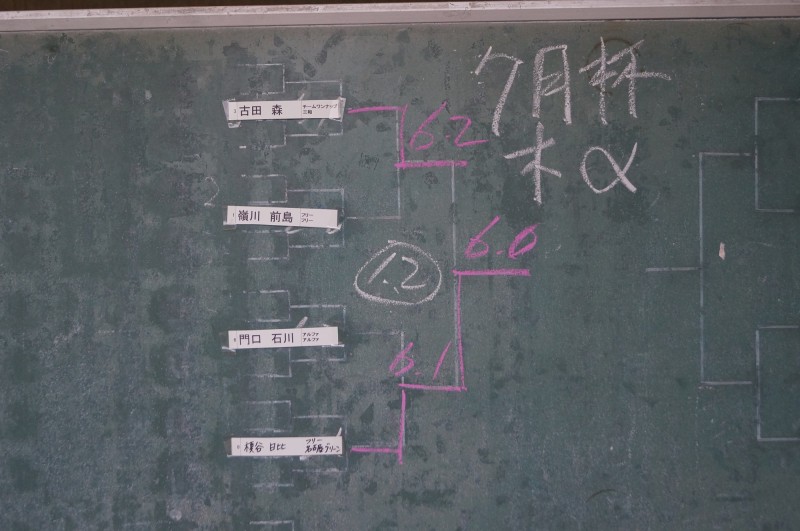 7月杯
木 α
古田 森 チームワンナップ
三輪
6.2
1 嶺川 前島 フリー
フリー
6.0
1.2
門口 石川 アルファ
アルファ
6.1
横谷 日比 フリー
名古屋グリーン